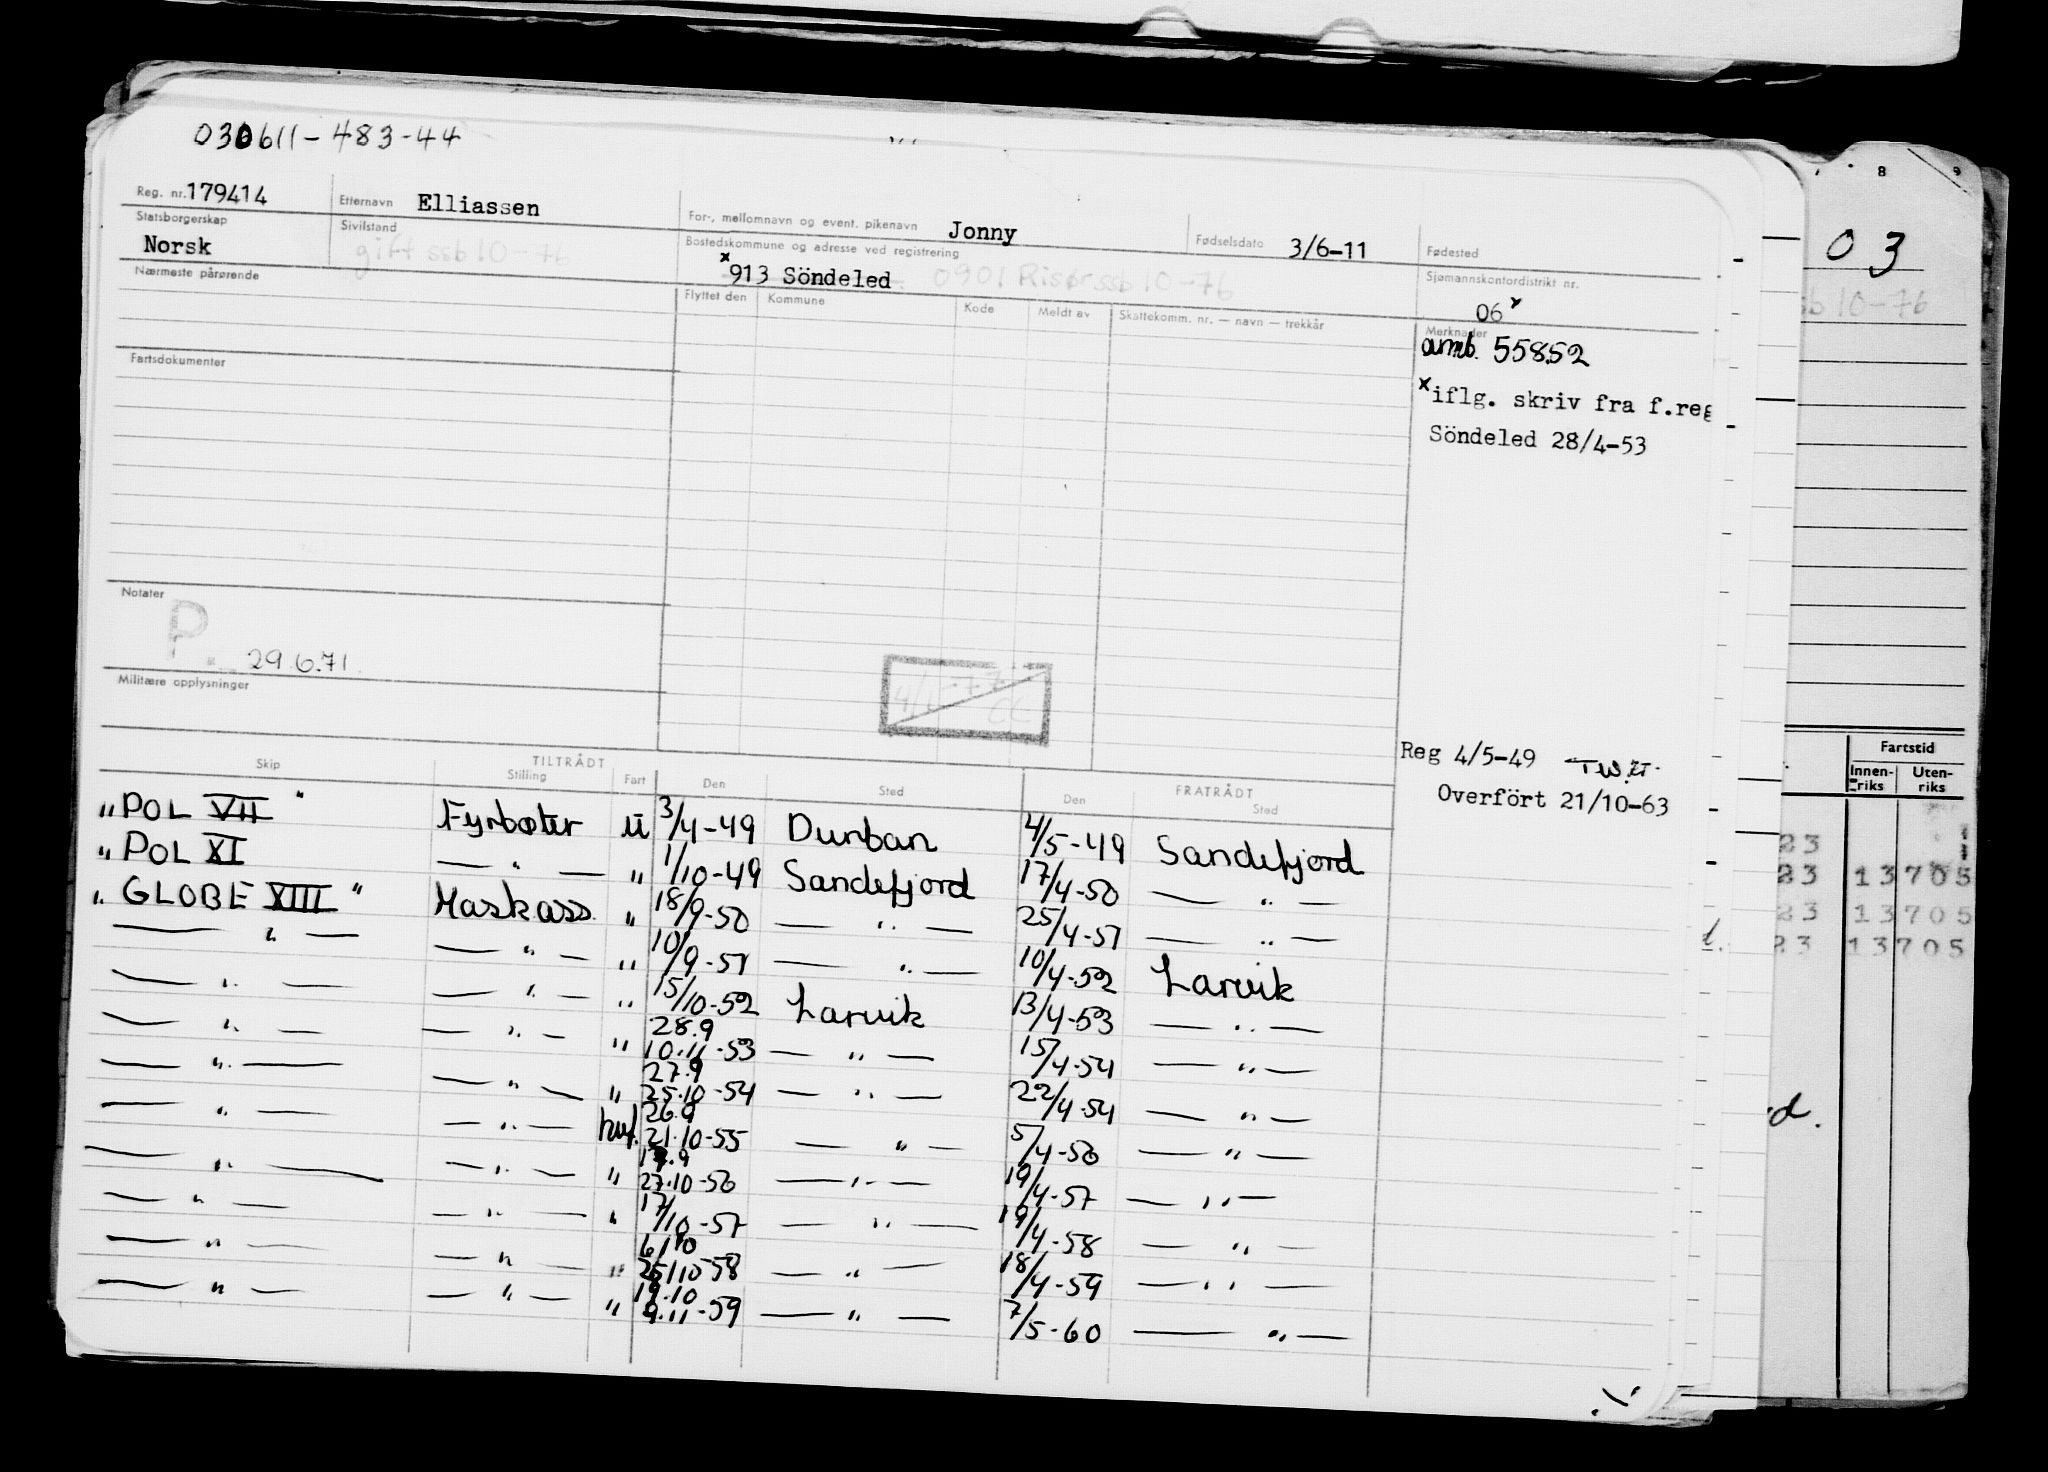 030611-483-44
Reg. nr. 179414 Etternavn Elliassen For-, mellomnavn og event. pikenavn Jonny Fødselsdato 3/6-11 Fødested
Statsborgerskap Norsk Sivilstand gift ssb 10-76 Bostedskommune og adresse ved registrering x 913 Söndeled 0901 Risør ssb 10-76 Sjømannskontordistrikt nr. 06 x
Nærmeste pårørende Flyttet den Kommune Kode Meldt av Skattekomm. nr. — navn — trekkår Merknader
amb. 55852
x iflg. skriv fra f.reg
Söndeled 28/4-53
Fartsdokumenter
Notater
P. 29.6.71.
Militære opplysninger
Reg 4/5-49
Overfört 21/10-63
TILTRÅDT FRATRÅDT
Skip Stilling Fart Den Sted Den Sted
"POL VII" Fyrbøter U 3/4-49 Durban 4/5-49 Sandefjord
"POL XI — " — " 1/10-49 Sandefjord 17/4-50 — " —
"GLOBE XIII" Maskass. " 18/9-50 — " — 25/4-51 — " —
— " — — " — " 10/9-51 — " — 10/4-52 Larvik
— " — — " — " 15/10-52 Larvik 13/4-53 — " —
— " — — " — " 28.9 10.11-53 — " — 15/4-54 — " —
— " — — " — " 27.9 25.10-54 — " — 22/4-54 — " —
— " — — " — hvf. 26.9 21.10-55 — " — 5/4-56 — " —
— " — — " — " 17.9 27.10-56 — " — 19/4-57 — " —
— " — — " — " 17/10-57 — " — 19/4-58 — " —
— " — — " — " 6/10 25/10-58 — " — 18/4-59 — " —
— " — — " — " 19.10 9.11-59 — " — 7/5-60 — " —
8 9
03
ssb 10-76
Fartstid
Innen-riks Uten-riks
23
23 13705
23 13705
23 13705
d.